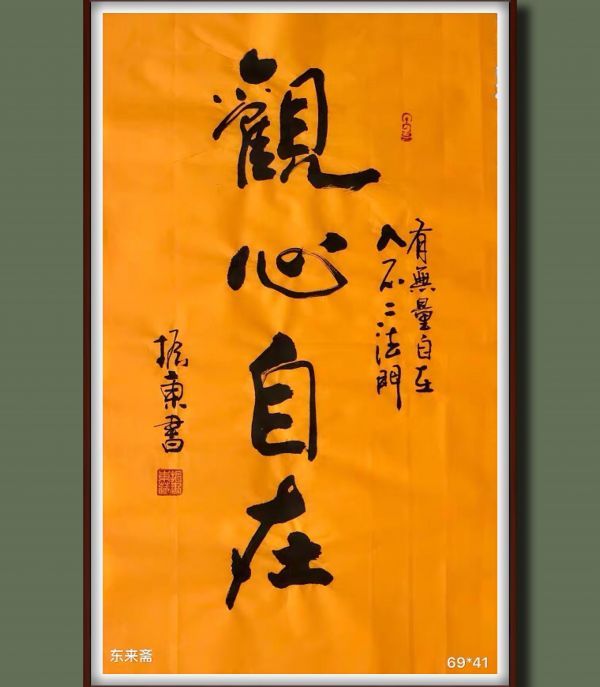 有無量自在
入不二法門
觀心自在
振東書
东来斋
69*41